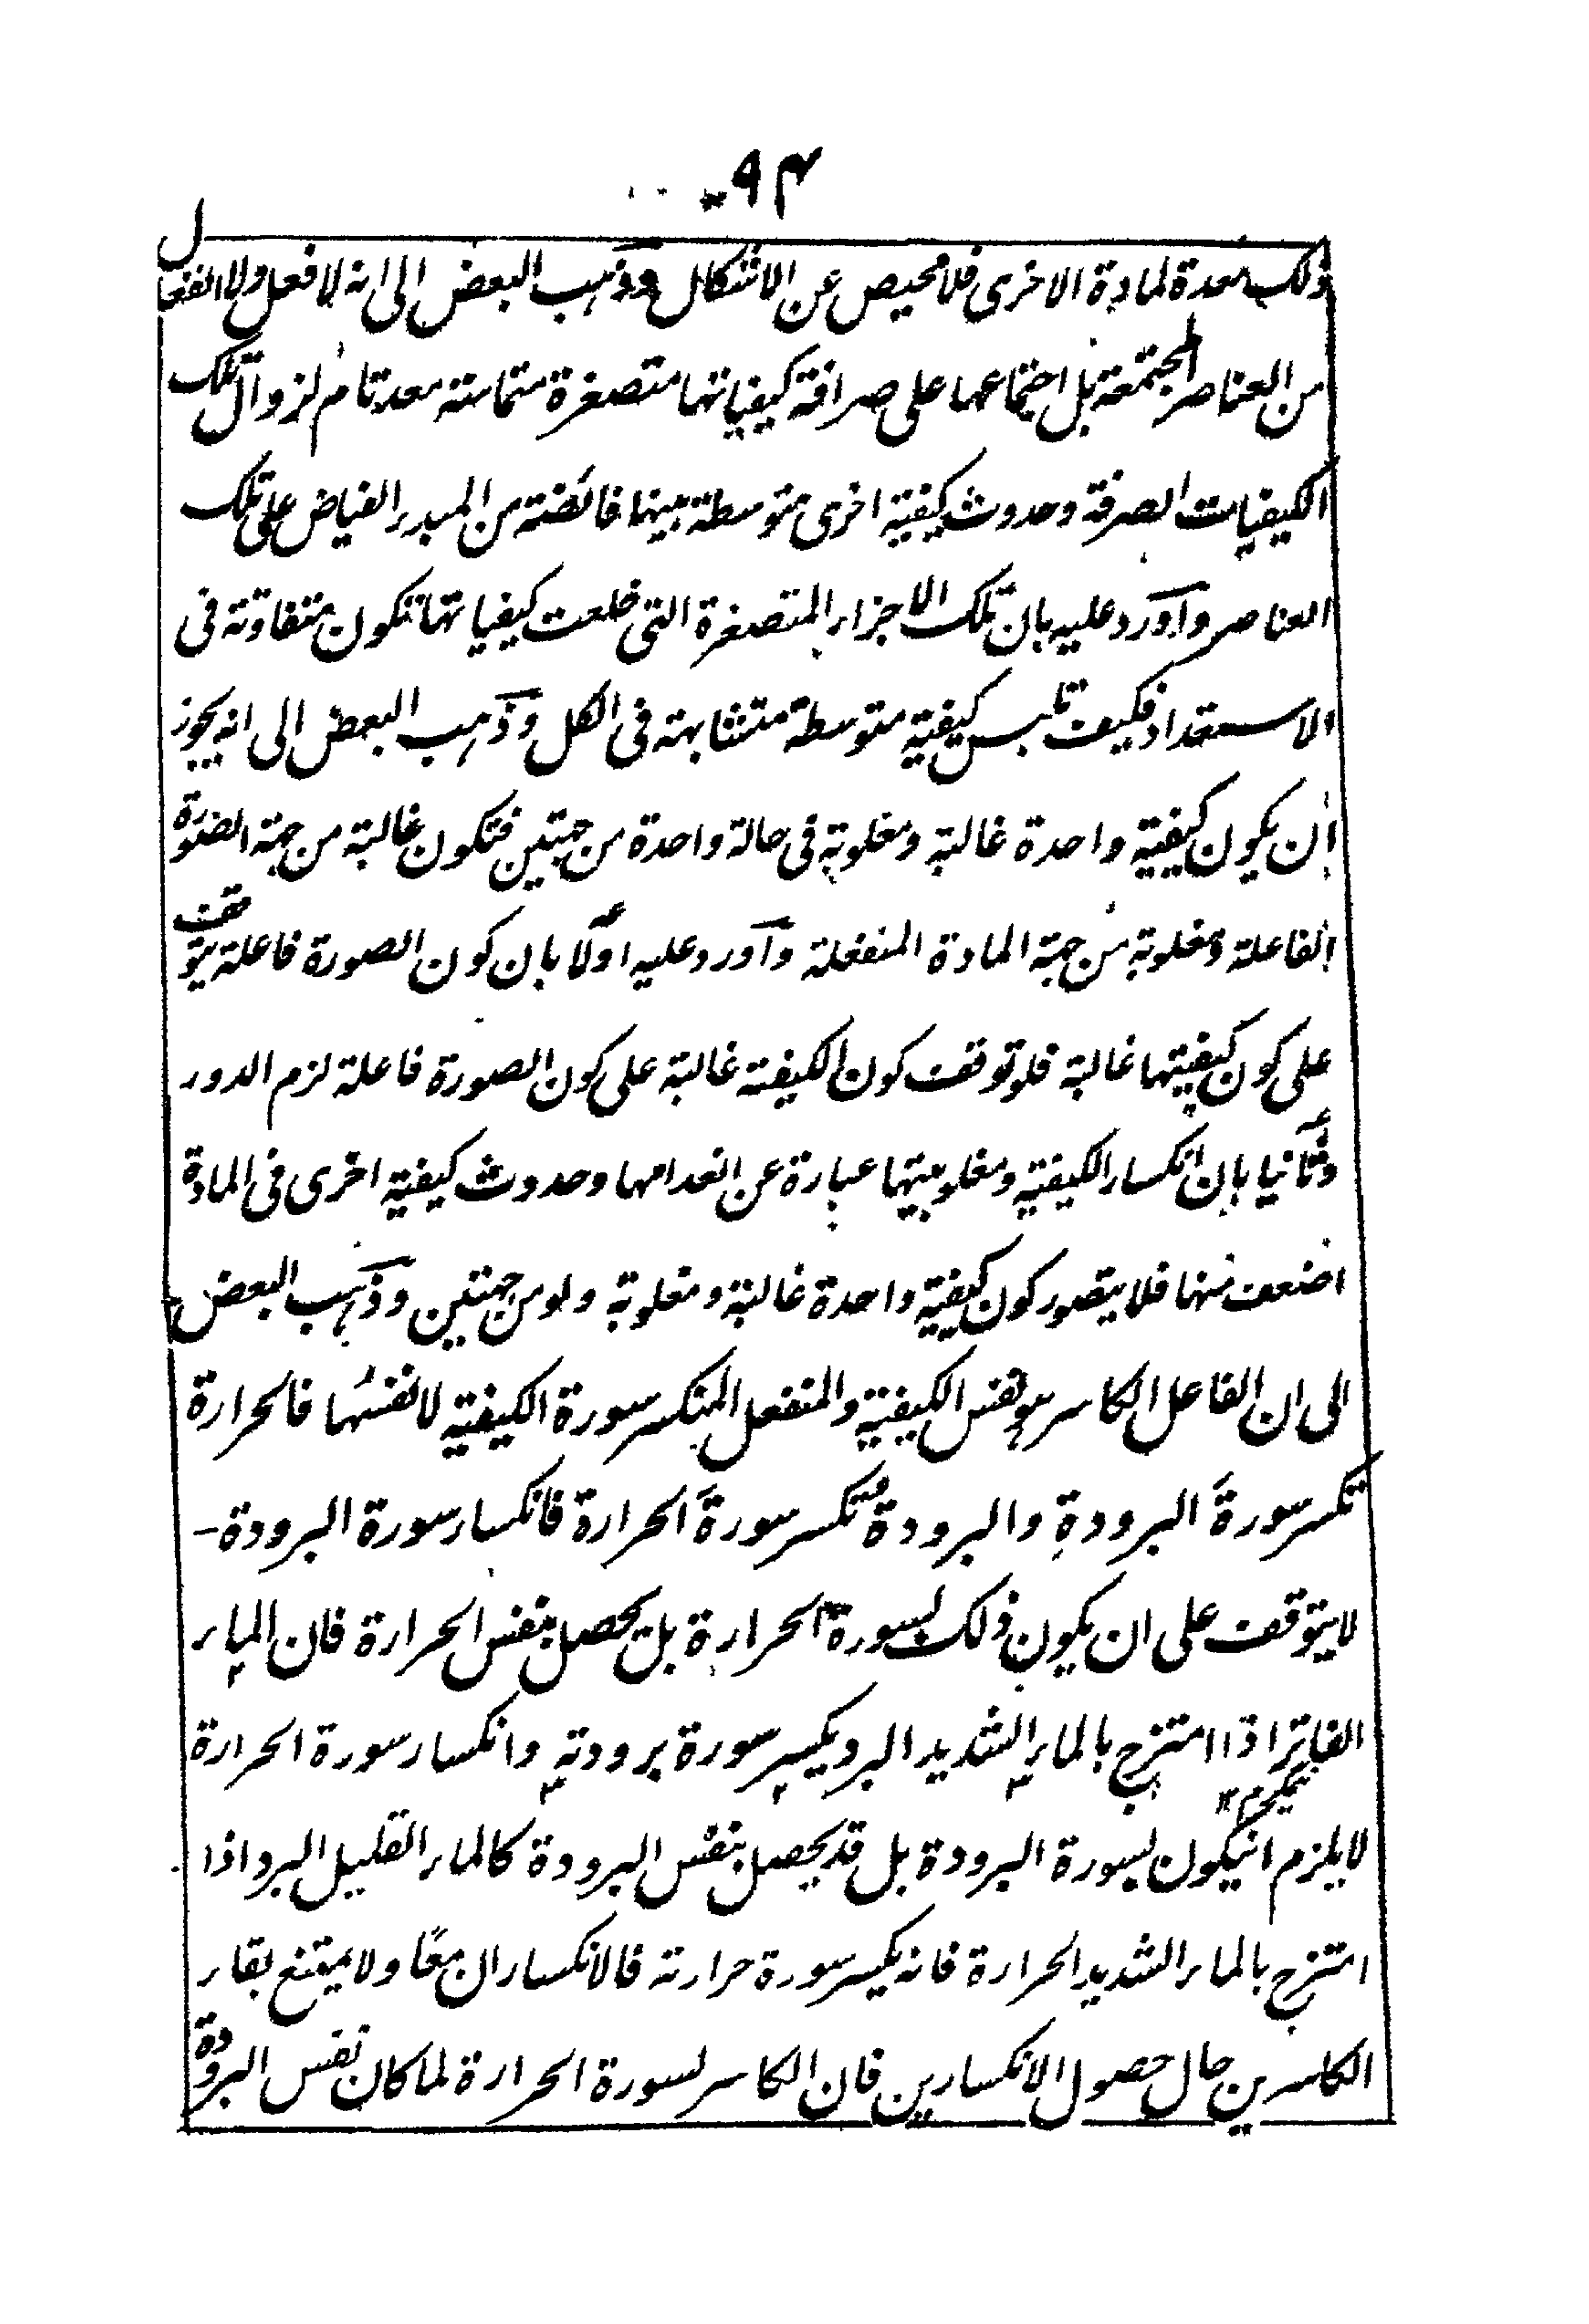 ٩٤
ذلك معدة لمادة الاخرى فلا محيص عن الاشكال وذهب البعض الى انه لا فعل ولا انفعال
من العناصر المجتمعة بل اجتماعها على صرافة كيفياتها متصغرة متماسة معد تام لزوال تلك
الكيفيات الصرفة وحدوث كيفية اخرى متوسطة بينها فائضة من المبدء الفياض على تلك
العناصر واورد عليه بان تلك الاجزاء المتصغرة التي خلعت كيفياتها تكون متفاوتة في
الاستعداد فكيف تلبس كيفية متوسطة متشابهة في الكل وذهب البعض الى انه يجوز
ان يكون كيفية واحدة غالبة ومغلوبة في حالة واحدة من جهتين فتكون غالبة من جهة الصورة
الفاعلة ومغلوبة من جهة المادة المنفعلة واورد عليه اولًا بان كون الصورة فاعلة يتوقف
على كون كيفيتها غالبة فلو توقف كون الكيفية غالبة على كون الصورة فاعلة لزم الدور
وثانيا بان انكسار الكيفية ومغلوبيتها عبارة عن انعدامها وحدوث كيفية اخرى في المادة
اضعف منها فلا يتصور كون كيفية واحدة غالبة ومغلوبة ولو من جهتين وذهب البعض
الى ان الفاعل الكاسر هو نفس الكيفية والمنفعل المنكسر سورة الكيفية لا نفسُها فالحرارة
تكسر سورةَ البرودةِ والبرودةُ تكسر سورةَ الحرارة فانكسار سورة البرودة -
لا يتوقف على ان يكون ذلك لسورة الحرارة بل يحصل بنفس الحرارة فان الماء
الفاتر اذا امتزج بالماء الشديد البرد يكسر سورة برودته وانكسار سورة الحرارة
لا يلزم انيكون لسورة البرودة بل قد يحصل بنفس البرودة كالماء القليل البرد اذا
امتزج بالماء الشديد الحرارة فانه يكسر سورة حرارته فالانكساران معًا ولا يمتنع بقاء
الكاسرين حال حصول الانكسارين فان الكاسر لسورة الحرارة لما كان نفس البرودة